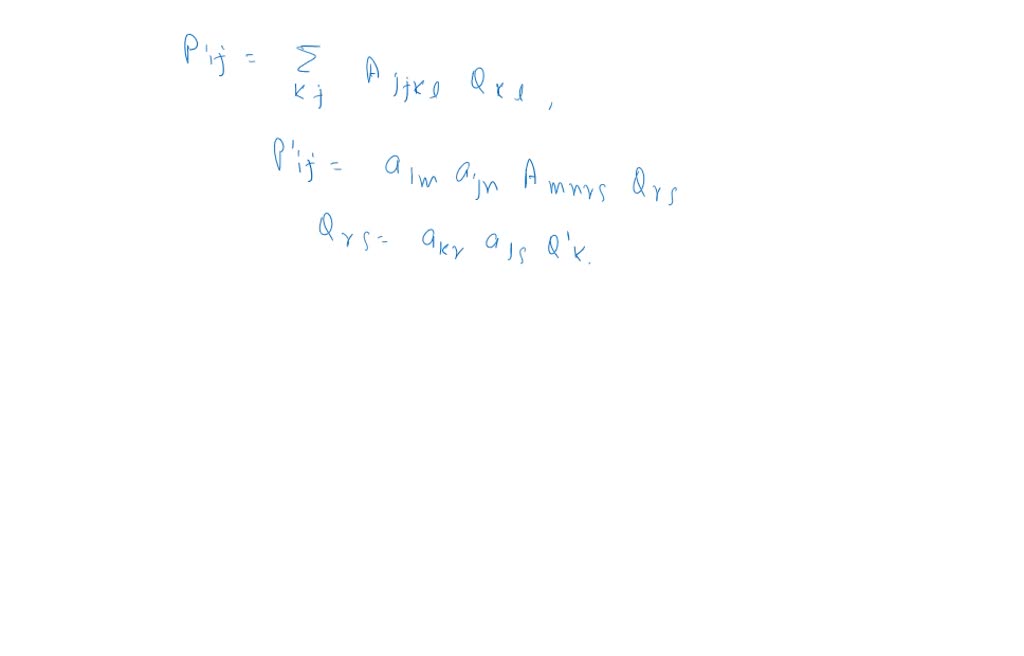 P'ij = Σ Kj Ajjkl Qkl,
P'ij = aim ajn Amnrs Qrs
Qrs = akr als Q'k.